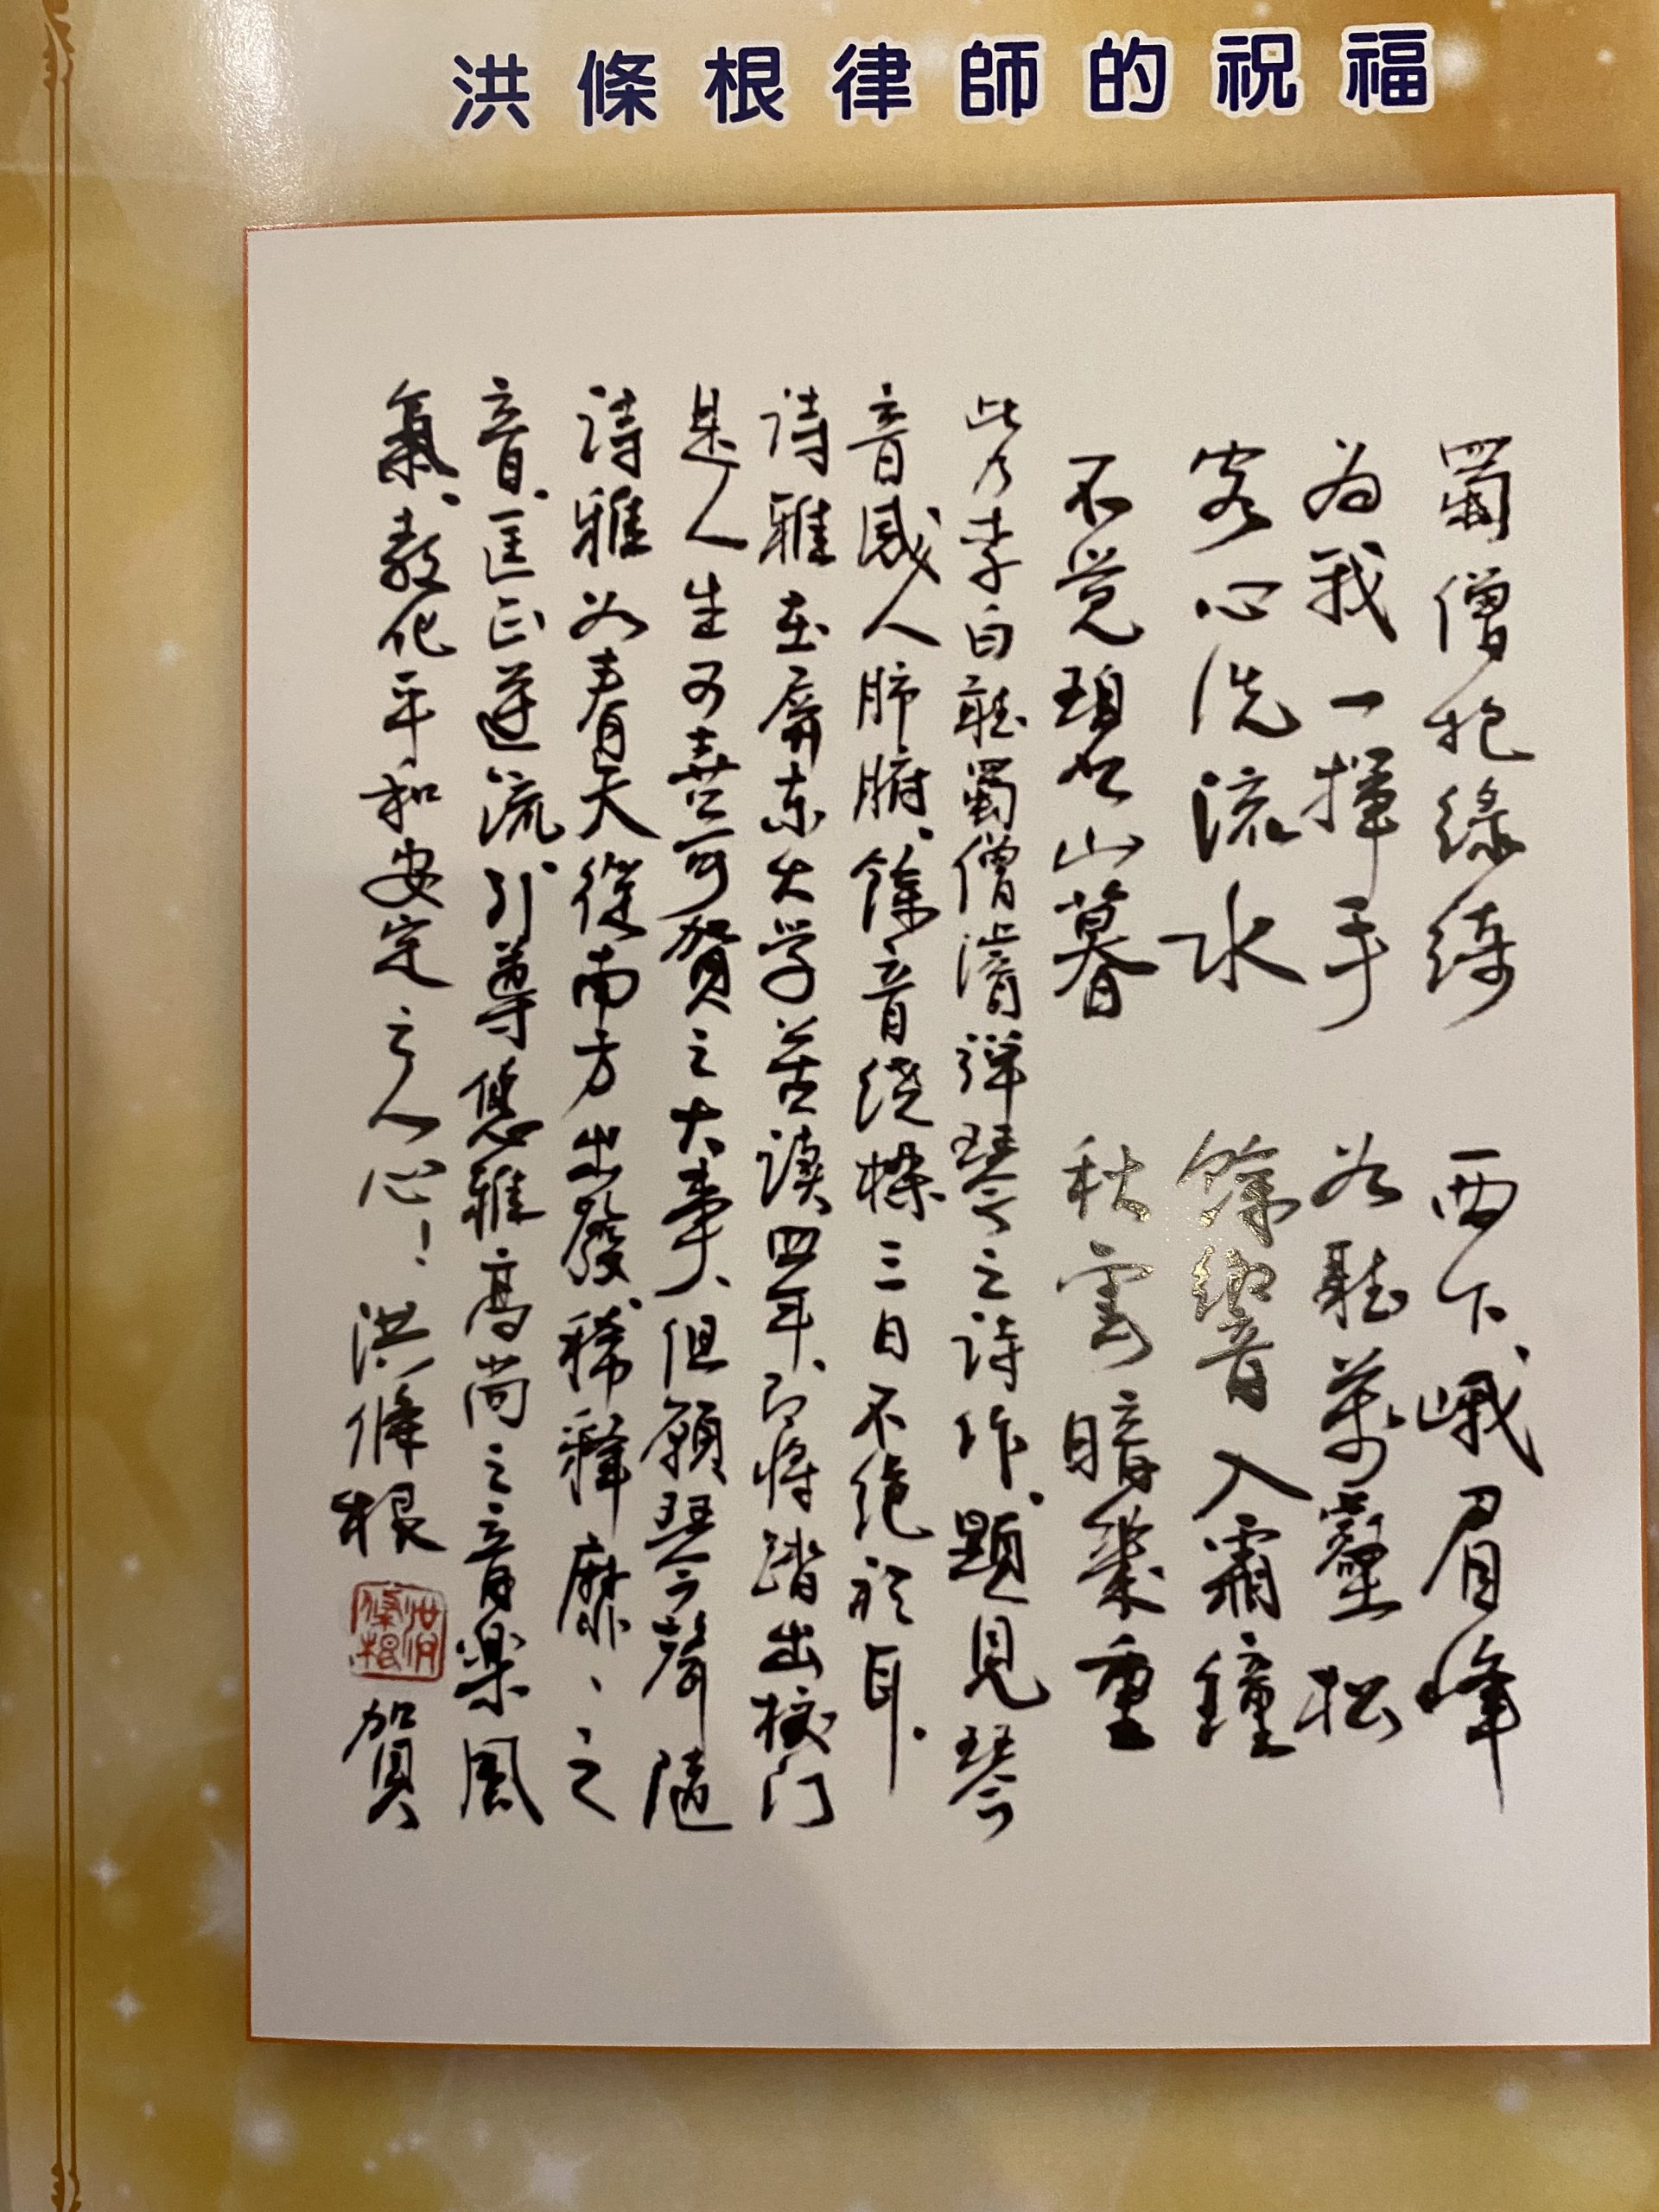 洪條根律師的祝福
蜀僧抱綠綺 西下峨眉峰
為我一揮手 如聽萬壑松
客心洗流水 餘響入霜鐘
不覚碧山暮 秋雲暗幾重
此乃李白聽蜀僧濬彈琴之诗作、題見琴
音感人肺腑、餘音绕樑三日不绝於耳.
诗雅在屏東大学苦读四年、即将踏出校门
是人生可喜可贺之大事、但願琴聲隨
詩雅如春天從南方出發、稀釋靡、之
音、匡正逆流、引導悠雅高尚之音楽風
氣、教化平和安定之人心!洪條根 洪條根 賀